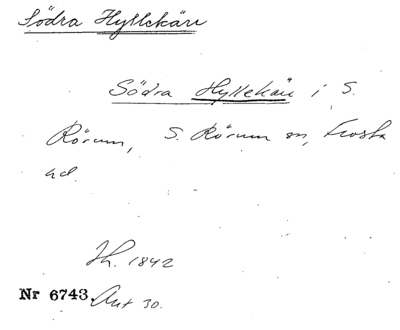 Södra Hyllekärr
Södra Hyllekärr i S.
Rörum, S. Rörum sn, Frosta
hd.
Jh. 1842
Nr 6743. Ant 30.